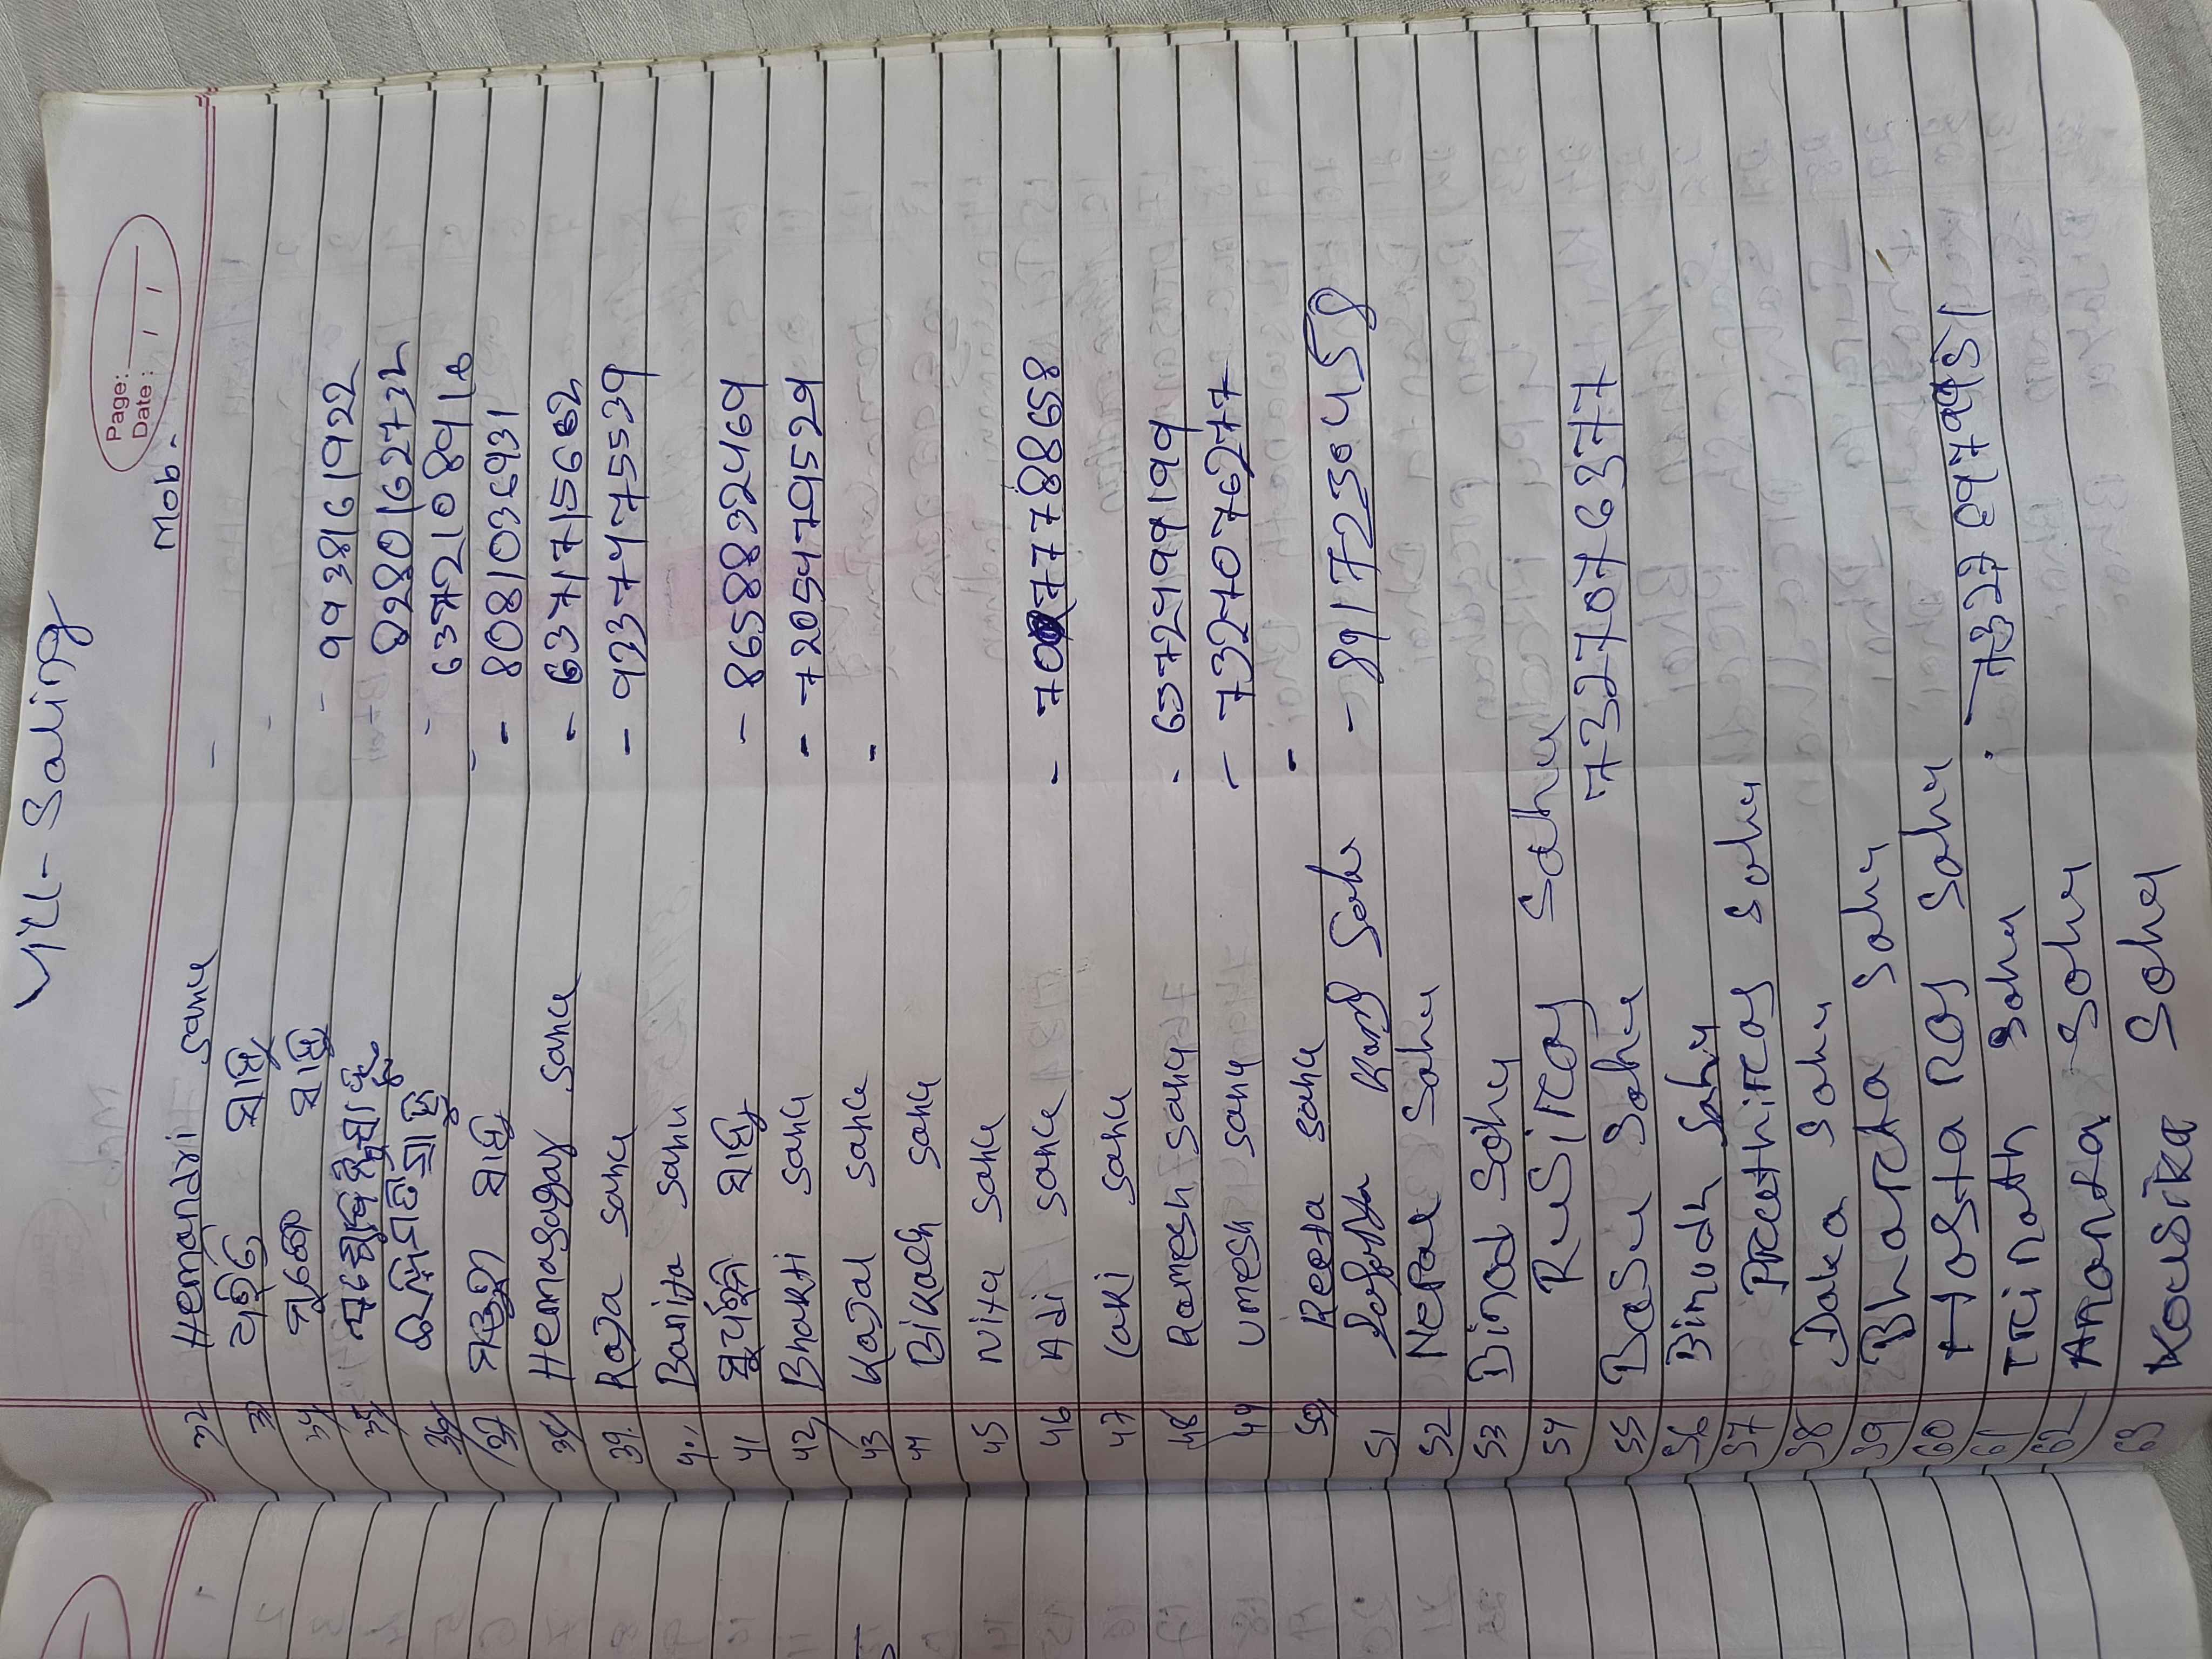 Vill- Saling
Page:
Date: / /
Mob-
32 Hemandri sahu -
33 ସାହୁ -
34 ମୁକେଶ ସାହୁ - 9938161922
35 8280162732
36 - 6372108918
37 ସାହୁ - 8081036931
38 Hemasagar sahu - 6371715662
39. Raja sahu - 9237475539
40. Banita sahu
41 ସାହୁ - 8658832469
42 Bhakti sahu - 7205479529
43 Kajal sahu -
44 Bikash sahu
45 Nita sahu
46 Adi sahu - 7077788658
47 Laki sahu
48 Ramesh sahu - 6372999199
49 Umesh sahu - 7327076277
50 Reeta sahu -
51 Sahu - 8917230458
52 Nepal Sahu
53 Binod Sahu
54 Rusiraj Sahu
55 Basu Sahu 7327076377
56 Bimudh Sahu
57 Pruthiraj Sahu
58 Daka Sahu
59 Bharta Sahu
60 Hasta raj Sahu
61 Trinath Sahu - 7327897951
62 Ananta Sahu
63 Kousika Sahu